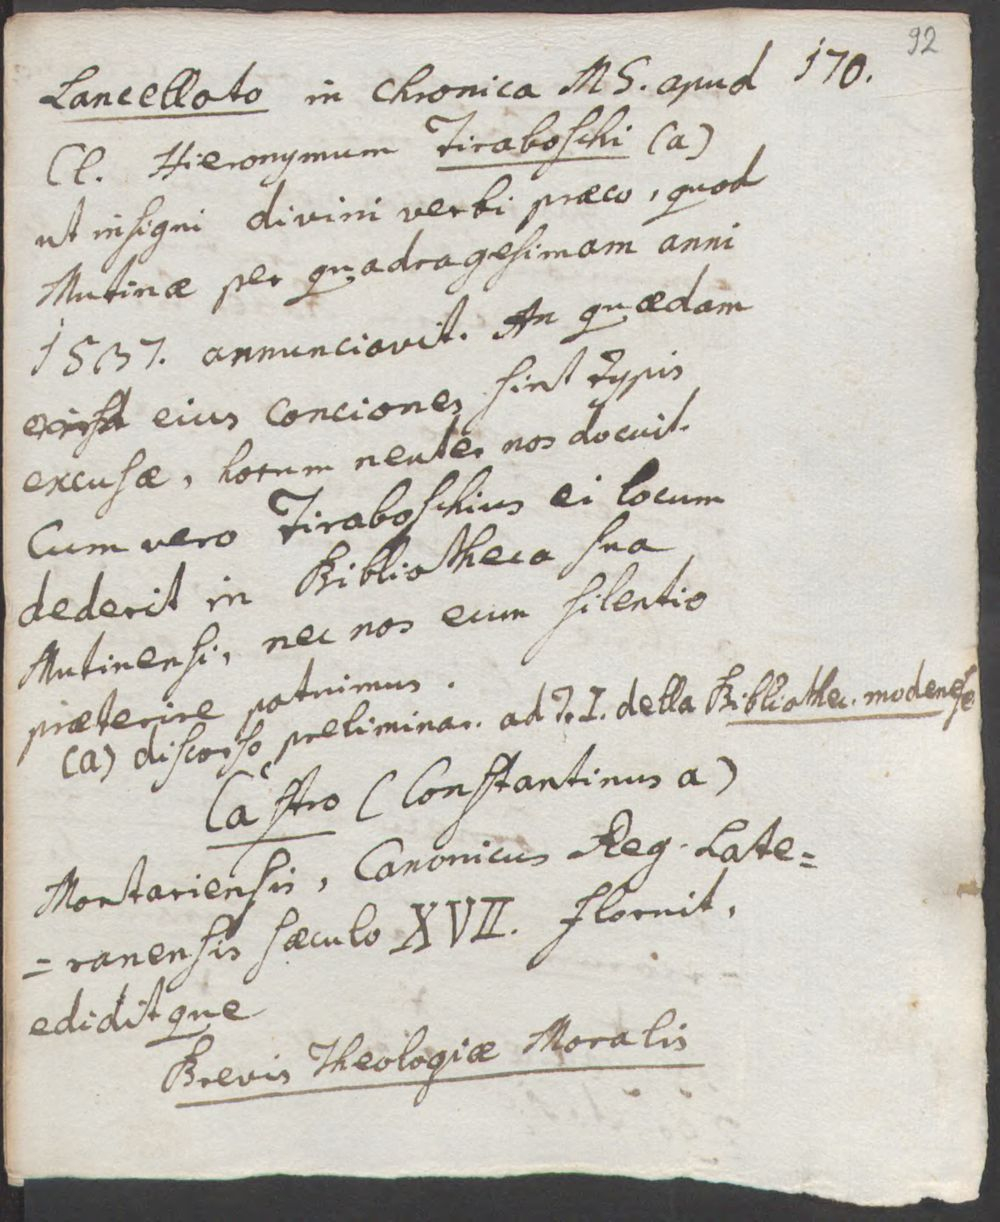 92
170.
Lancellato in chronica MS. apud
Cl. Hieronymum Tiraboschi (a)
ut insigni divini verbi præco, quod
Mutinæ per quadragesimam anni
1537. annunciavit. An quædam
eius conciones sint typis
excusæ, horum neuter nos docuit.
Cum vero Tiraboschius ei locum
dederit in Bibliotheca sua
Mutinensi, nec nos eum silentio
præterire potuimus.
(a) discorso preliminar. ad T. I. della Bibliothec. modenese
Castro (Constantinus a)
Montariensis, Canonicus Reg. Late=
=ranensis sæculo XVII. floruit,
ediditque
Brevis Theologiæ Moralis